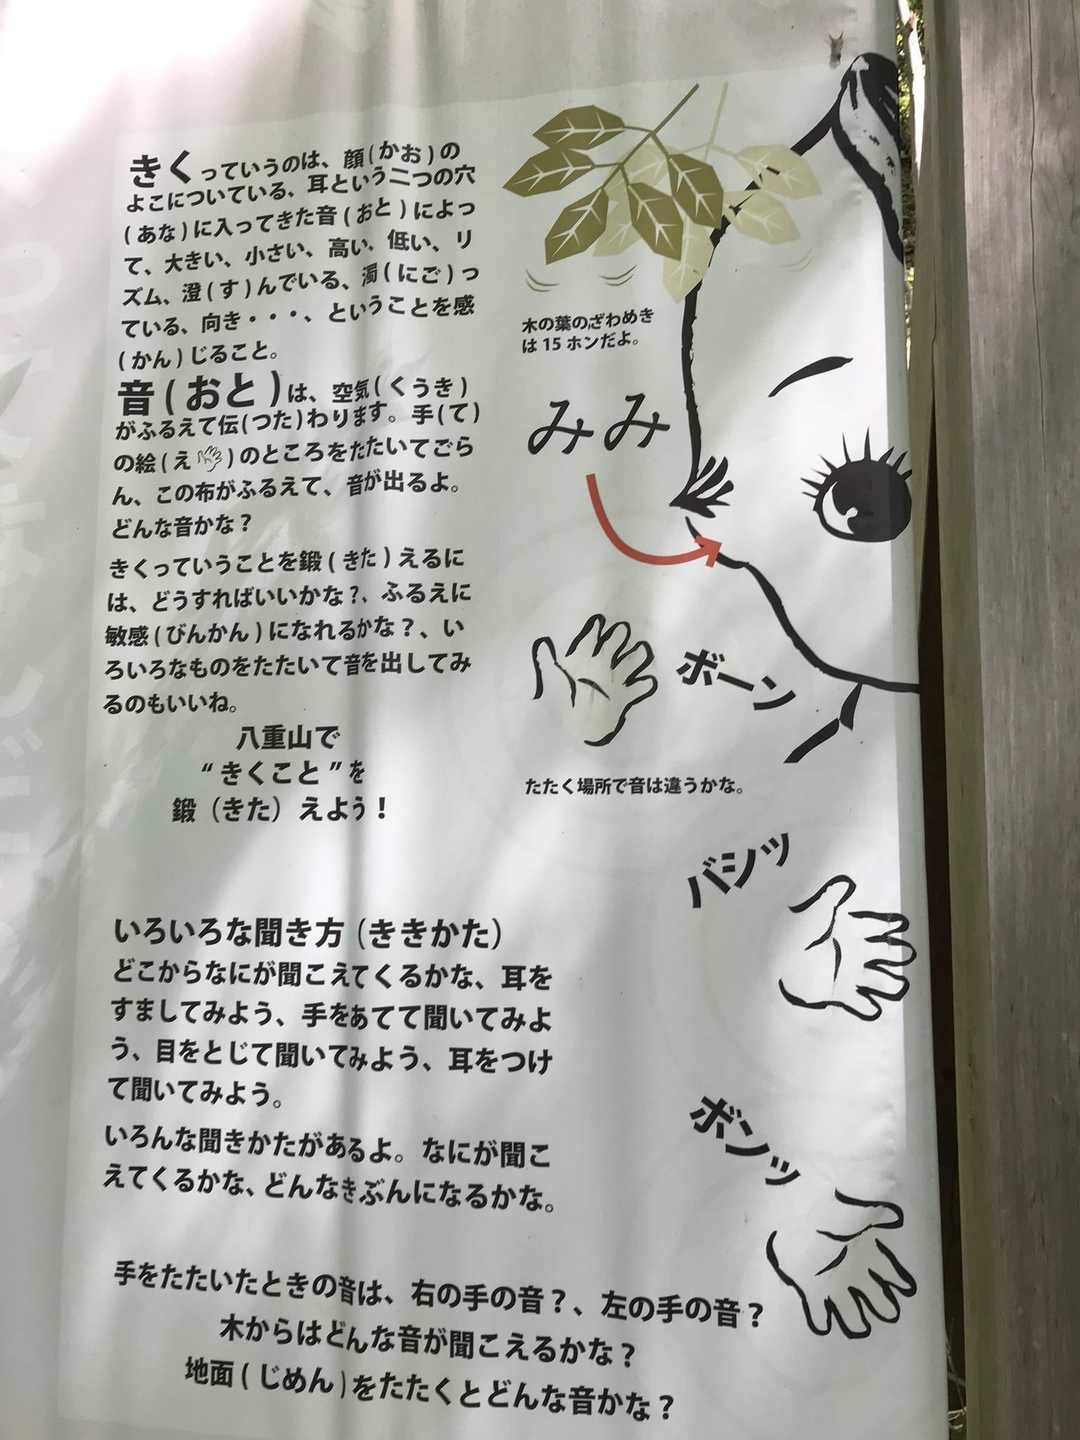 きくっていうのは、顔(かお)の
よこについている、耳という二つの穴
(あな)に入ってきた音(おと)によっ
て、大きい、小さい、高い、低い、リ
ズム、澄(す)んでいる、濁(にご)っ
ている、向き・・・、ということを感
(かん)じること。
音(おと)は、空気(くうき)
がふるえて伝(つた)わります。手(て)
の絵(え)のところをたたいてごら
ん、この布がふるえて、音が出るよ。
どんな音かな？
きくっていうことを鍛(きた)えるに
は、どうすればいいかな？、ふるえに
敏感(びんかん)になれるかな？、い
ろいろなものをたたいて音を出してみ
るのもいいね。
八重山で
“きくこと”を
鍛（きた）えよう！
木の葉のざわめき
は15ホンだよ。
みみ
ボーン
たたく場所で音は違うかな。
バシッ
ボンッ
いろいろな聞き方（ききかた）
どこからなにが聞こえてくるかな、耳を
すましてみよう、手をあてて聞いてみよ
う、目をとじて聞いてみよう、耳をつけ
て聞いてみよう。
いろんな聞きかたがあるよ。なにが聞こ
えてくるかな、どんなきぶんになるかな。
手をたたいたときの音は、右の手の音？、左の手の音？
木からはどんな音が聞こえるかな？
地面(じめん)をたたくとどんな音かな？